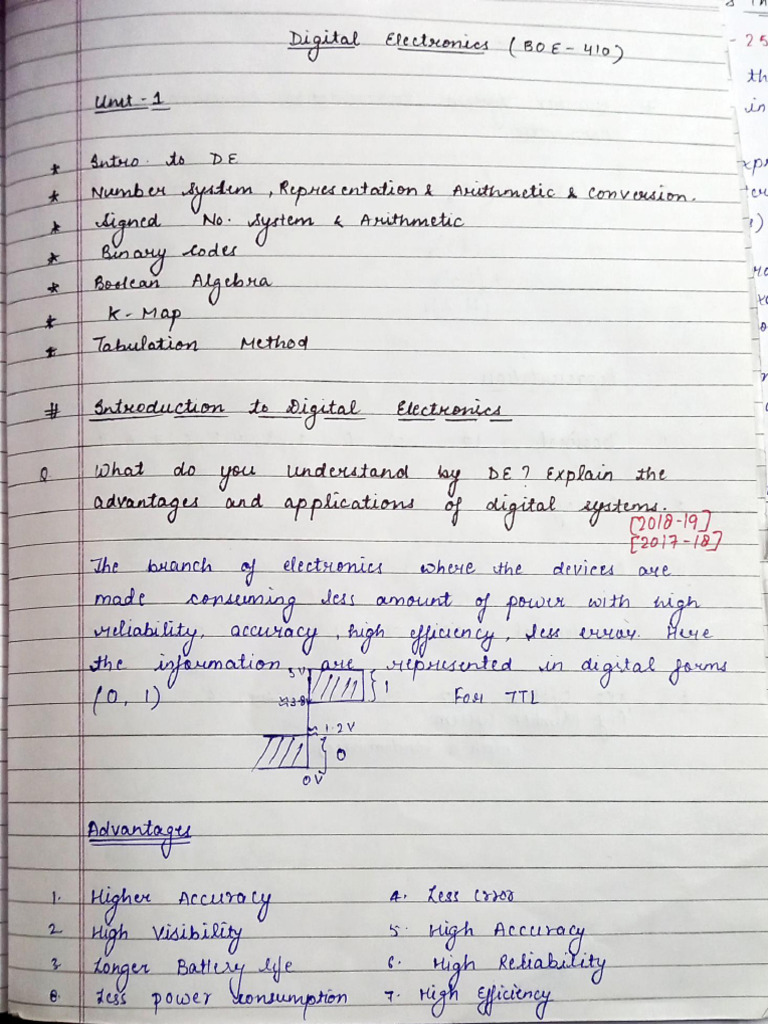 Digital Electronics (BOE-410)
Unit-1
* Intro. to DE
* Number System, Representation & Arithmetic & Conversion.
* Signed No. System & Arithmetic
* Binary Codes
* Boolean Algebra
* K-Map
* Tabulation Method
# Introduction to Digital Electronics
Q What do you understand by DE? Explain the
advantages and applications of digital systems.
[2018-19]
[2017-18]
The branch of electronics where the devices are
made consuming less amount of power with high
reliability, accuracy, high efficiency, less error. Here
the information are represented in digital forms
(0, 1)
5V
1
For TTL
≈ 1.2V
0
0V
Advantages
1. Higher Accuracy 4. Less Error
2. High Visibility 5. High Accuracy
3. Longer Battery life 6. High Reliability
8. Less power consumption 7. High Efficiency